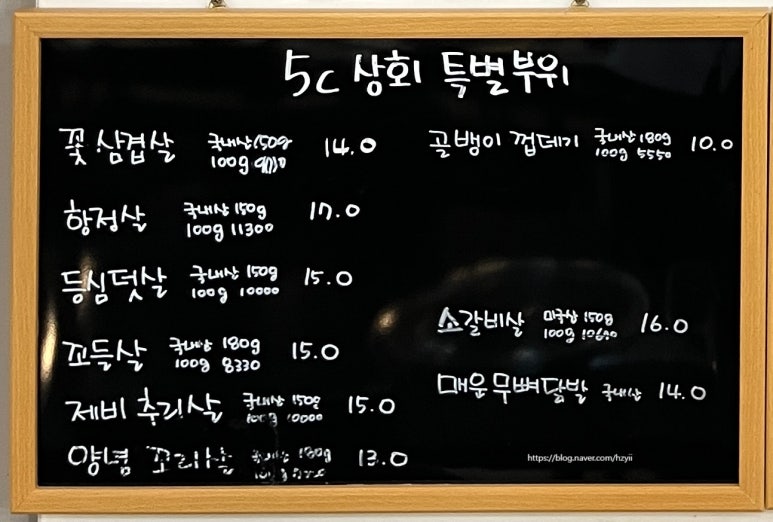 5c 상회 특별부위
꽃삼겹살 국내산 150g 14.0
100g
항정살 국내산 150g 17.0
100g 11300
등심덧살 국내산 150g 15.0
100g 10000
꼬들살 국내산 180g 15.0
100g 8330
제비추리살 국내산 150g 15.0
100g 10000
양념 꼬리살 국내산 180g 13.0
골뱅이 껍데기 국내산 180g 10.0
100g 5550
소갈비살 미국산 150g 16.0
100g
매운무뼈닭발 국내산 14.0
https://blog.naver.com/hzyii